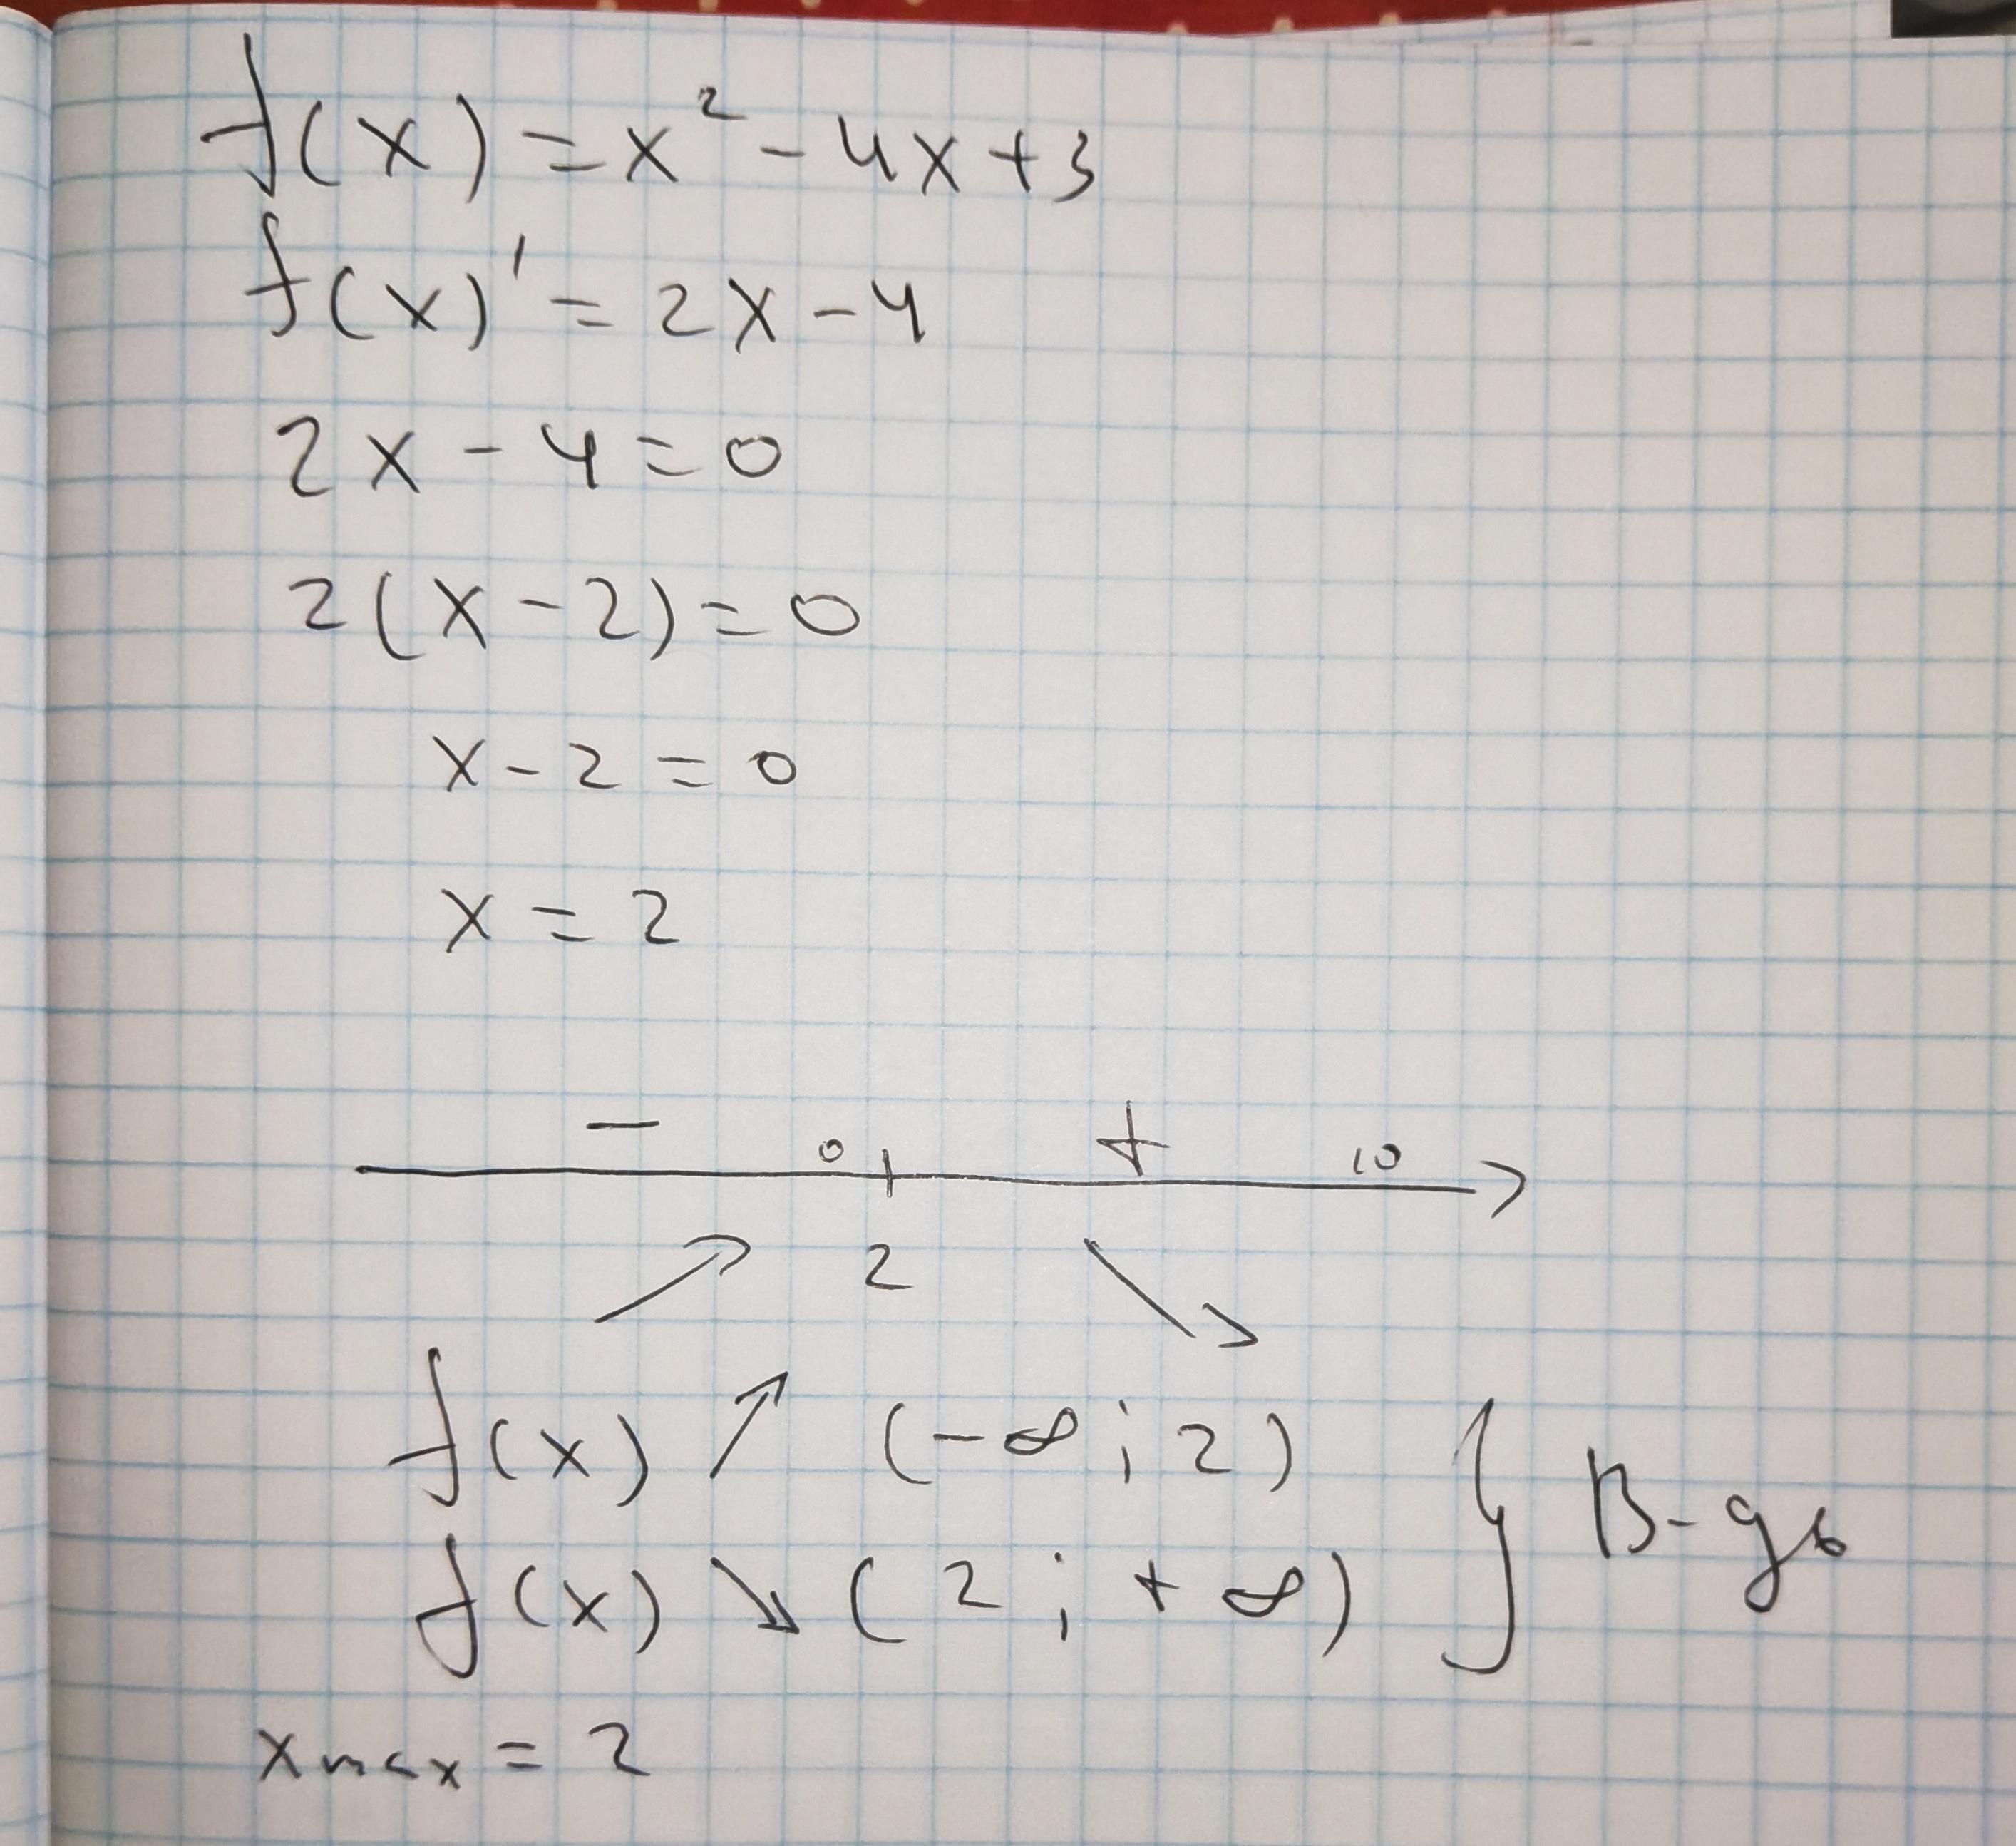 f(x) = x² - 4x + 3
f(x)' = 2x - 4
2x - 4 = 0
2(x - 2) = 0
x - 2 = 0
x = 2
− 0 + 10
↗ 2 ↘
f(x) ↗ (-∞; 2)
f(x) ↘ (2; +∞) } В-дь
x max = 2